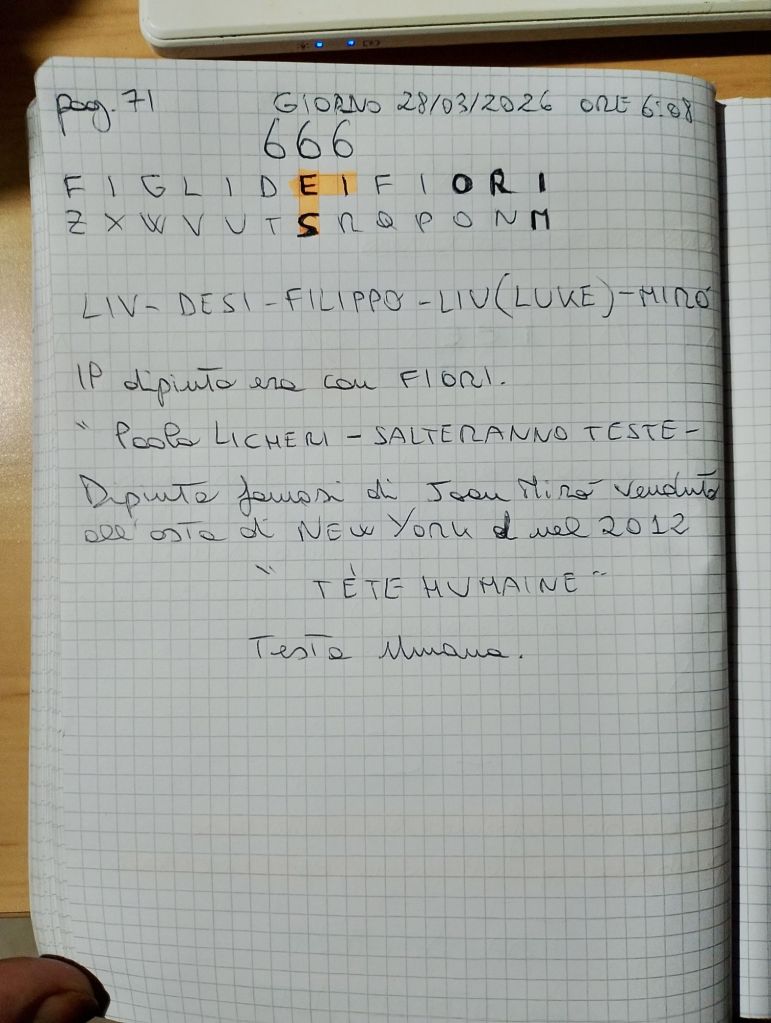 pag. 71 GIORNO 28/03/2026 ORE 6:08
666
F I G L I D E I F I O R I
Z X W V U T S R Q P O N M
LIV - DESI - FILIPPO - LIV (LUKE) - MIRÓ
IP dipinto era con FIORI.
" Paolo LICHERI - SALTERANNO TESTE -
Dipinto famosi di Joan Miró venduto
all'asta di NEW YORK nel 2012
" TÊTE HUMAINE "
Testa Umana.